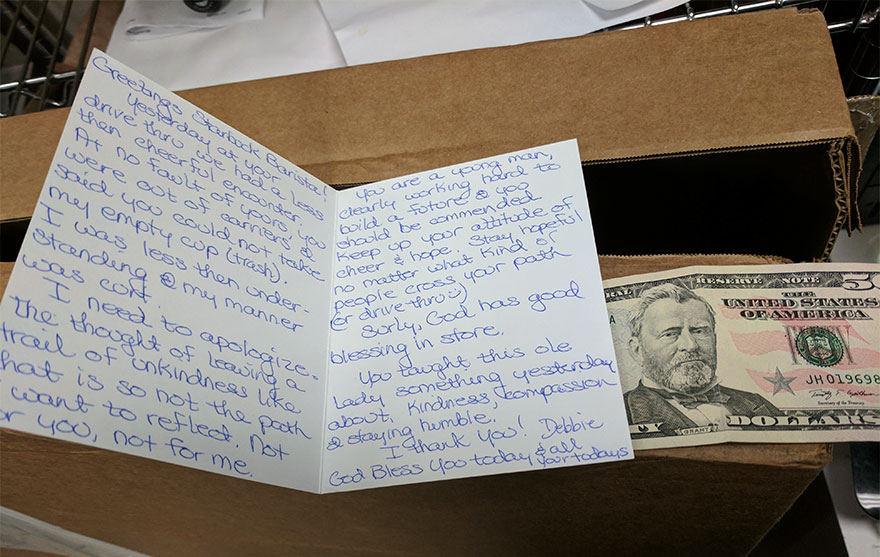 Greetings Starbock Barista!
Yesterday at your
drive thru we had a less
then cheerful encounter.
At no fault of yours, you
were out of carriers &
said you could not take
my empty cup (trash).
I was less then under-
standing & my manner
was curt.
I need to apologize-
the thought of leaving a
trail of unkindness like
that is so not the path
I want to reflect. Not
for you, not for me.
You are a young man,
clearly working hard to
build a future & you
should be commended.
Keep up your attitude of
cheer & hope. Stay hopeful
no matter what kind of
people cross your path
(or drive thru :)
Surly, God has good
blessing in store.
You taught this ole
Lady something yesterday
about, kindness, compassion
& staying humble.
I thank you! Debbie
God Bless You today & all
your todays
RESERVE NOTE
50
THE
UNITED STATES
OF AMERICA
JH019698
Secretary of the Treasury
GRANT
DOLLARS